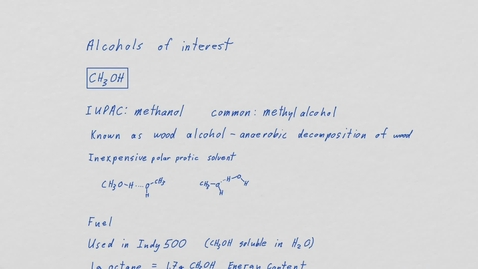 Alcohols of interest
CH3OH
IUPAC: methanol common: methyl alcohol
Known as wood alcohol - anaerobic decomposition of wood
Inexpensive polar protic solvent
CH3O-H····O-CH3 CH3-O····H-O
H H H
Fuel
Used in Indy 500 (CH3OH soluble in H2O)
1g octane = 1.7g CH3OH Energy Content